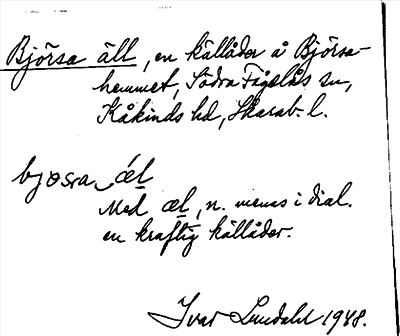 Björsa äll, en källåder å Björsa-
hemmet, Södra Fågelås sn,
Kåkinds hd, Skarab. l.
bjøsra œ́l
Med œl, n. menas i dial.
en kraftig källåder.
Ivar Lundahl 1948.